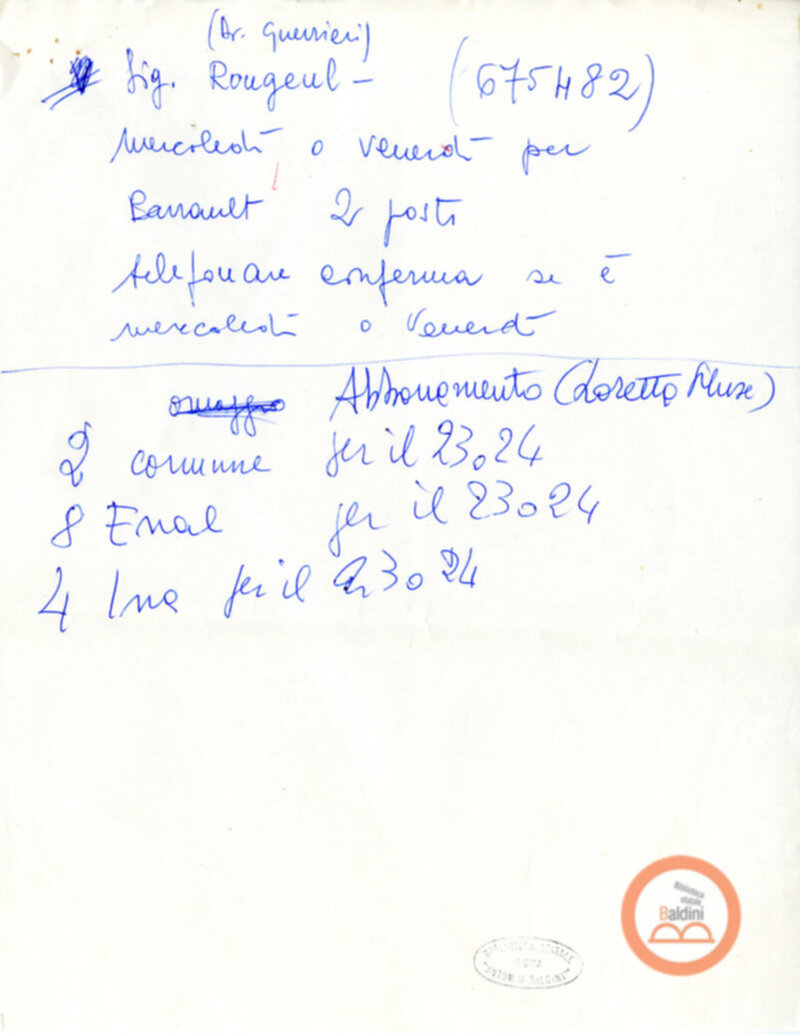 (Dr. Guerrieri)
Sig. Rougeul – (675482)
mercoledì o venerdì per
Barrault 2 posti
telefonare conferma se è
mercoledì o venerdì
omaggio Abbonamento (Loretta Muse)
2 comune per il 23 o 24
8 Enal per il 23 o 24
4 Ina per il 23 o 24
Biblioteca
statale
Baldini
BIBLIOTECA STATALE
ROMA
"ANTONIO BALDINI"